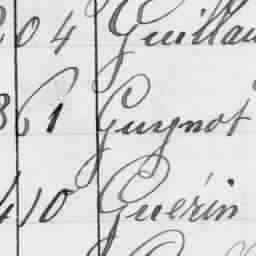 04 Guillau
361 Guynot
410 Guérin